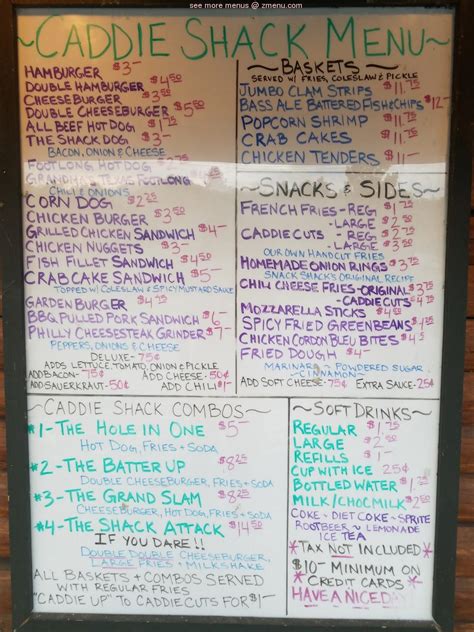 see more menus @ zmenu.com
~CADDIE SHACK MENU~
HAMBURGER $3-
DOUBLE HAMBURGER $4.50
CHEESEBURGER
DOUBLE CHEESEBURGER
ALL BEEF HOT DOG
THE SHACK DOG
BACON, ONION & CHEESE
FOOTLONG HOT DOG
FOOTLONG
CHILI & ONIONS
CORN DOG
CHICKEN BURGER
GRILLED CHICKEN SANDWICH $4-
CHICKEN NUGGETS $3-
FISH FILLET SANDWICH
CRAB CAKE SANDWICH
TOPPED W/ COLESLAW & SPICY MUSTARD SAUCE
GARDEN BURGER
BBQ PULLED PORK SANDWICH $6-
PHILLY CHEESESTEAK GRINDER $7-
PEPPERS, ONIONS & CHEESE
DELUXE - 75¢
ADDS LETTUCE, TOMATO, ONION & PICKLE
ADD BACON - 75¢ ADD CHEESE - 50¢
ADD SAUERKRAUT - 50¢ ADD CHILI $1-
~BASKETS~
SERVED W/ FRIES, COLESLAW & PICKLE
JUMBO CLAM STRIPS
BASS ALE BATTERED FISH & CHIPS $12-
POPCORN SHRIMP
CRAB CAKES
CHICKEN TENDERS $11-
~SNACKS & SIDES~
FRENCH FRIES - REG
- LARGE
CADDIE CUTS - REG
- LARGE
OUR OWN HANDCUT FRIES
HOMEMADE ONION RINGS
SNACK SHACK'S ORIGINAL RECIPE
CHILI CHEESE FRIES - ORIGINAL
- CADDIE CUTS
MOZZARELLA STICKS $4
SPICY FRIED GREEN BEANS
CHICKEN CORDON BLEU BITES $4-
FRIED DOUGH $4-
MARINARA ~ POWDERED SUGAR
~ CINNAMON ~
ADD SOFT CHEESE - 75¢ EXTRA SAUCE - 25¢
~CADDIE SHACK COMBOS~
#1-THE HOLE IN ONE $5-
HOT DOG, FRIES + SODA
#2-THE BATTER UP $8.25
DOUBLE CHEESEBURGER, FRIES + SODA
#3-THE GRAND SLAM $8.25
CHEESEBURGER, HOT DOG, FRIES + SODA
#4-THE SHACK ATTACK $14.50
IF YOU DARE !!
DOUBLE DOUBLE CHEESEBURGER,
LARGE FRIES + MILKSHAKE
ALL BASKETS + COMBOS SERVED
WITH REGULAR FRIES
"CADDIE UP" TO CADDIE CUTS FOR $1-
~SOFT DRINKS~
REGULAR $1.75
LARGE
REFILLS $1-
CUP WITH ICE 25¢
BOTTLED WATER
MILK/CHOC MILK
COKE - DIET COKE - SPRITE
ROOTBEER ~ LEMONADE
ICE TEA
*TAX NOT INCLUDED*
*$10- MINIMUM ON
CREDIT CARDS*
HAVE A NICE DAY